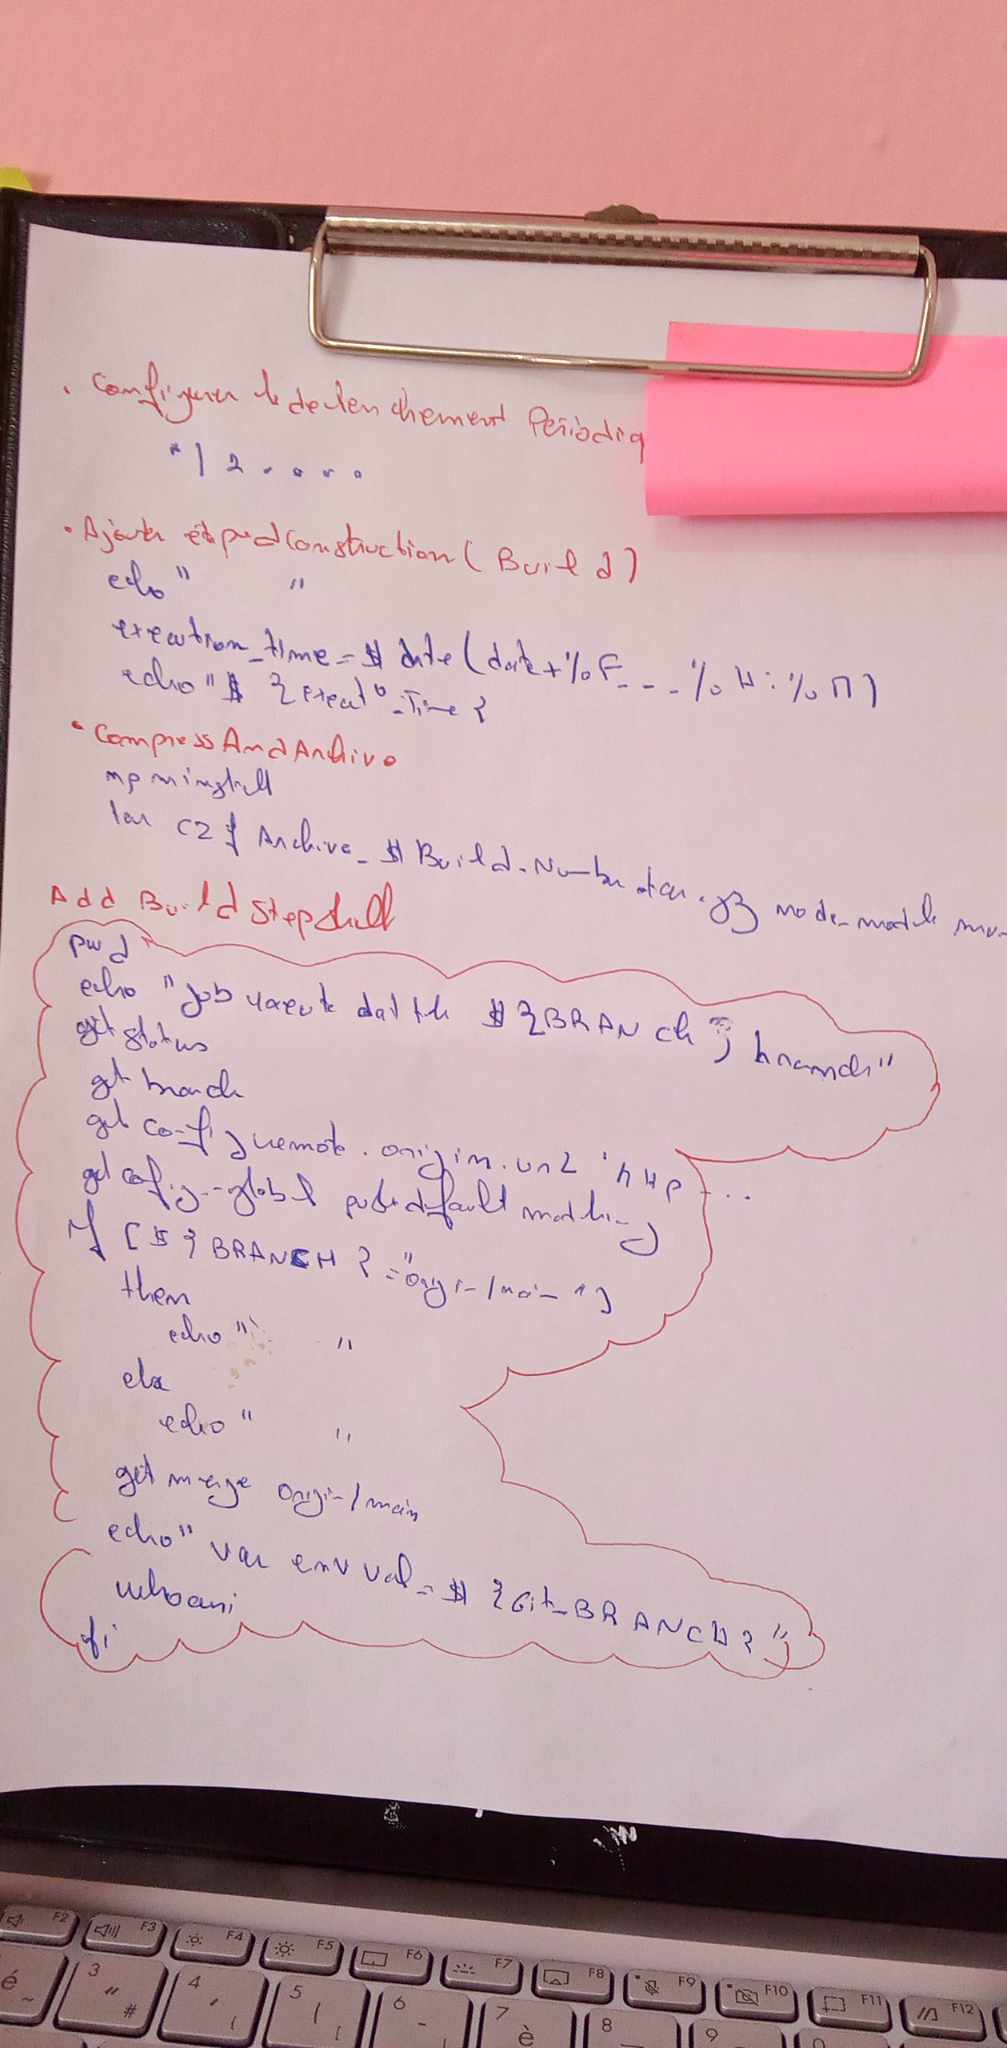 . Configurer le declenchement Periodiq
*/2 . . . .
• Ajouter étape d construction (Build)
echo " "
execution_time = $ date (date + %F - - - % H : % M)
echo "$ {execut°_Time}
• Compress And Archive
npm install
tar czf Archive_$Build_Number.tar.gz node_module
Add Build Step shell
pwd
echo "job execute dat the ${BRANch} branch"
git status
git branch
git config remote.origin.url 'http - ...
git config --global push default matching
if [ ${BRANCH} = "origin/main" ]
then
echo " "
else
echo " "
git merge origin/main
echo "var env val = ${Git_BRANCH}"
whoami
fi
F2
F3
F4
F5
F6
F7
F8
F9
F10
F11
F12
é ~
3 " #
4 ' {
5 ( [
6 -
7 è
8 _
9